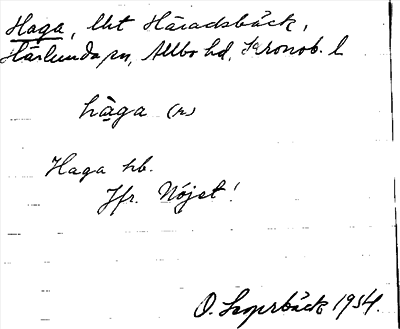 Haga, lht Häradsbäck,
Härlunda sn, Allbo hd, Kronob. l
hàga (r)
Haga hb.
Jfr. Nöjet!
O. 1954.